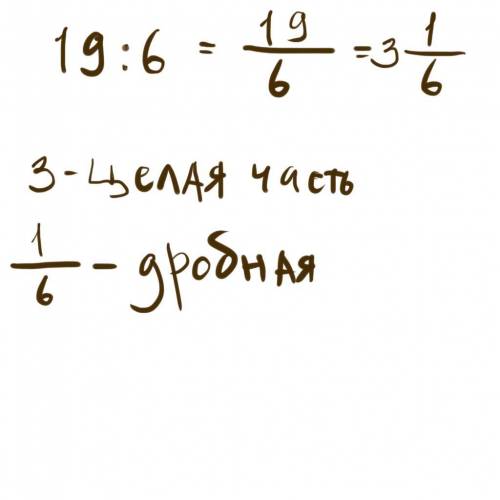 19:6 = 19/6 = 3 1/6
3 - целая часть
1/6 - дробная